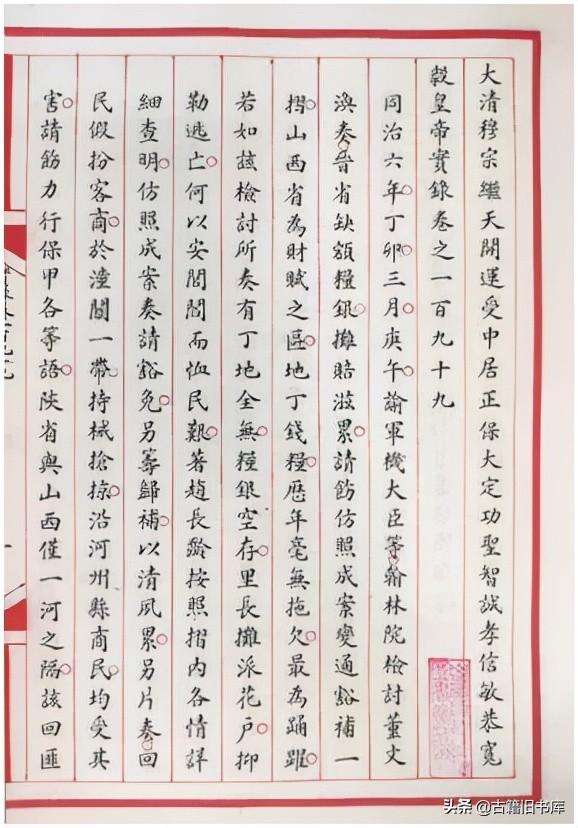 大清穆宗繼天開運受中居正保大定功聖智誠孝信敏恭寬
毅皇帝實錄卷之一百九十九
同治六年丁卯三月庚午諭軍機大臣等翰林院檢討董文
渙奏晉省缺額糧銀攤賠滋累請飭仿照成案變通豁補一
摺山西省為財賦之區地丁錢糧歷年毫無拖欠最為踴躍
若如該檢討所奏有丁地全無糧銀空存里長攤派花戶抑
勒逃亡何以安閭閻而恤民艱著趙長齡按照摺內各情詳
細查明仿照成案奏請豁免另籌歸補以清夙累另片奏回
民假扮客商於潼關一帶持械搶掠沿河州縣商民均受其
害請飭力行保甲各等語陝省與山西僅一河之隔該回匪
头条 @古籍旧书库